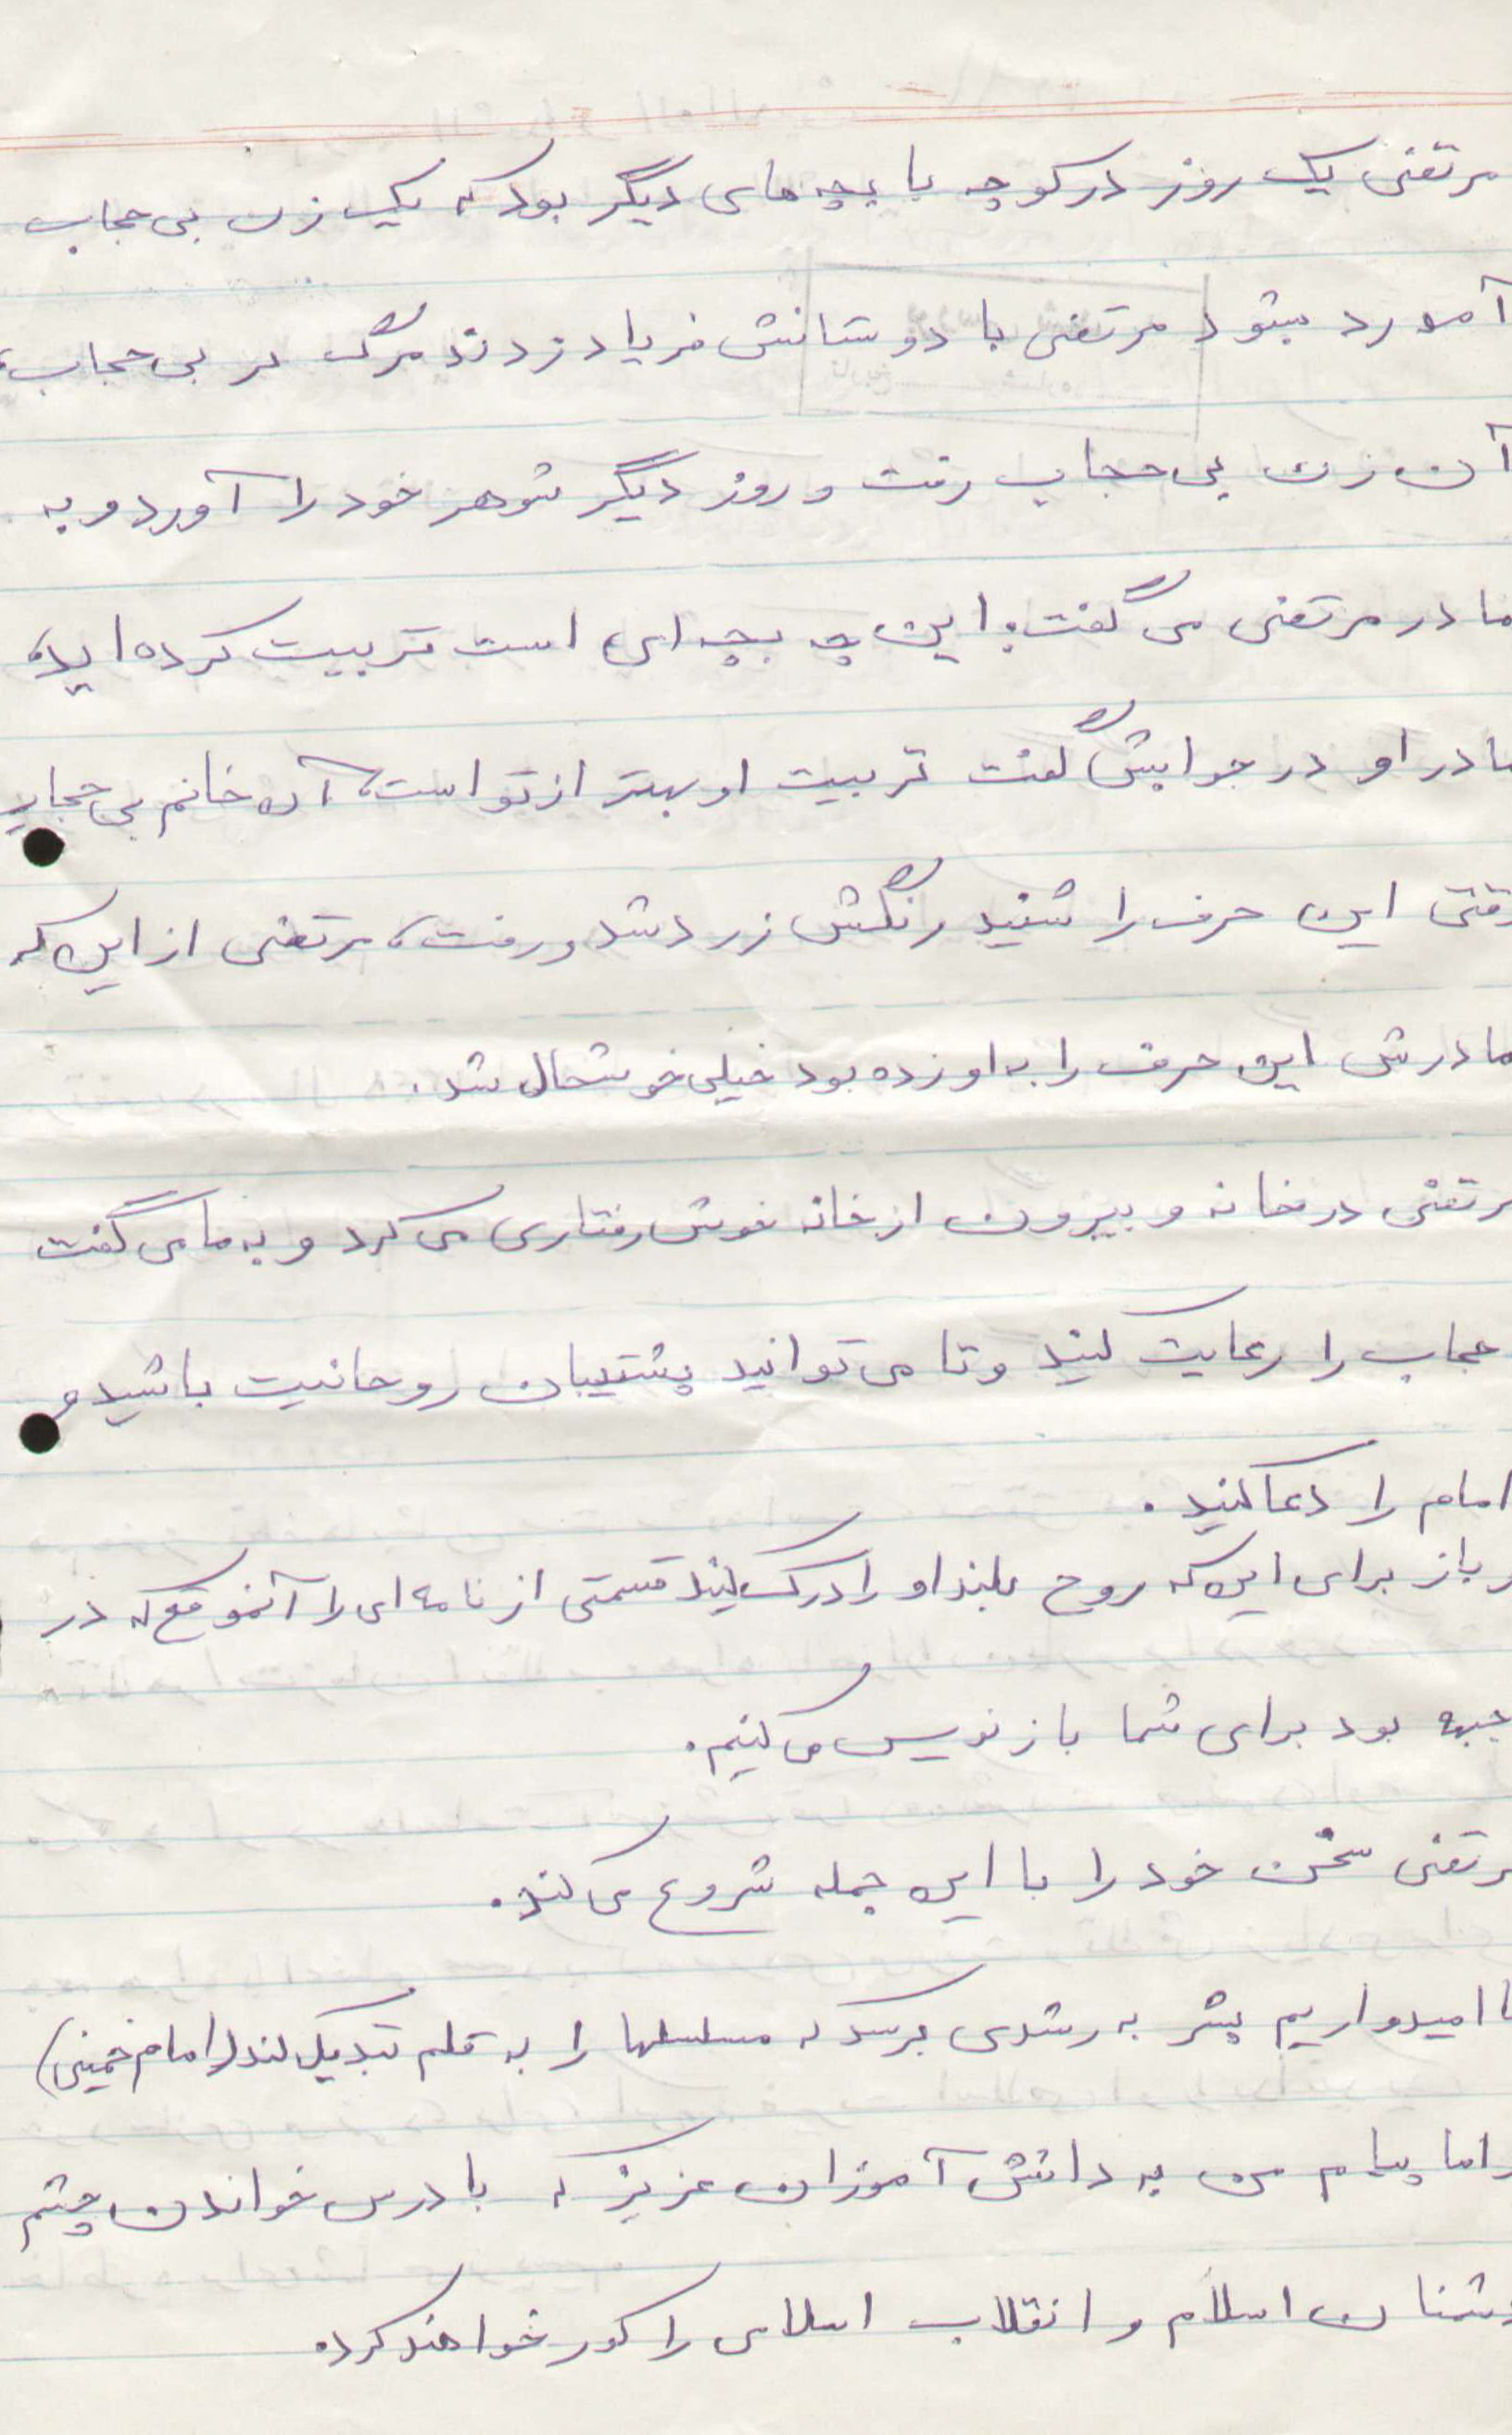 مرتضی یک روز در کوچه با بچه های دیگر بود که یک زن بی حجاب
آمد رد بشود مرتضی با دوستانش فریاد زدند مرگ بر بی حجاب،
آن زن بی حجاب رفت و روز دیگر شوهر خود را آورد و به
مادر مرتضی می گفت: این چه بچه ای است تربیت کرده اید،
مادر او در جوابش گفت تربیت او بهتر از تو است، آن خانم بی حجاب
وقتی این حرف را شنید رنگش زرد شد و رفت، مرتضی از این که
مادرش این حرف را به او زده بود خیلی خوشحال شد.
مرتضی در خانه و بیرون از خانه خوش رفتاری می کرد و به ما می گفت
حجاب را رعایت کنید و تا می توانید پشتیبان روحانیت باشید و
امام را دعا کنید.
و باز برای این که روح بلند او را درک کنید قسمتی از نامه ای را آنموقع که در
جبهه بود برای شما بازنویس می کنیم.
مرتضی سخن خود را با این جمله شروع می کند.
ما امیدواریم بشر به رشدی برسد که مسلسلها را به قلم تبدیل کند (امام خمینی)
و اما پیام من به دانش آموزان عزیز که با درس خواندن چشم
دشمنان اسلام و انقلاب اسلامی را کور خواهند کرد.